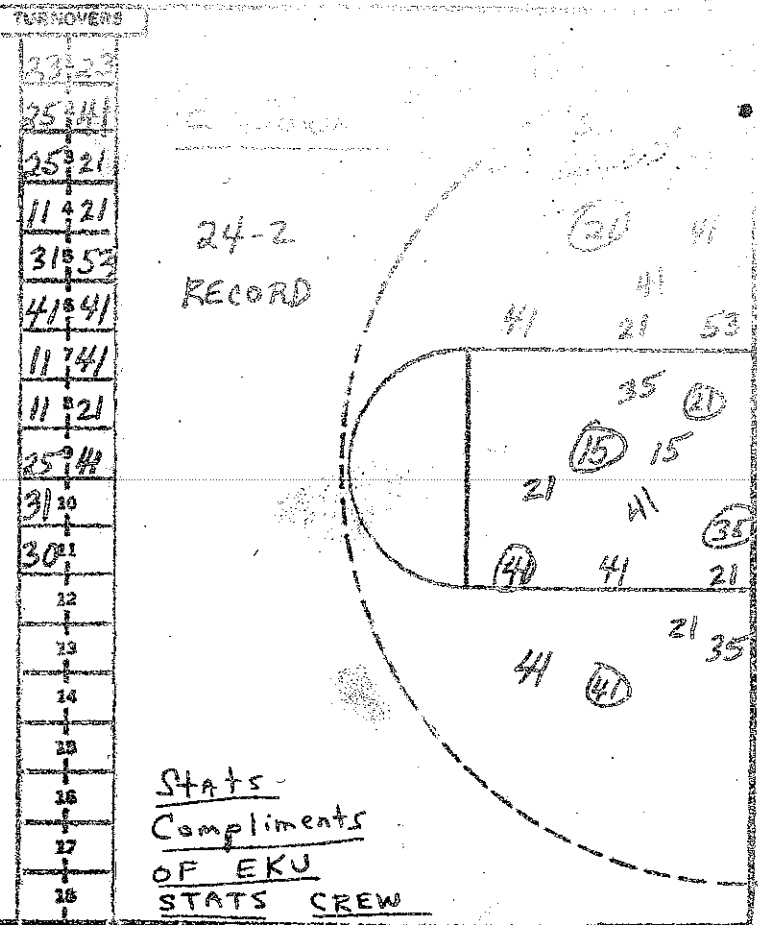 TURNOVERS
23 1 23
25 2 41
25 3 21
11 4 21
31 5 53
41 6 41
11 7 41
11 8 21
25 9 41
31 10
30 11
12
13
14
15
16
17
18
24-2
RECORD
21 41
41
41 21 53
35 21
15 15
21
41
35
41 41 21
21 35
41 41
Stats
Compliments
OF EKU
STATS CREW